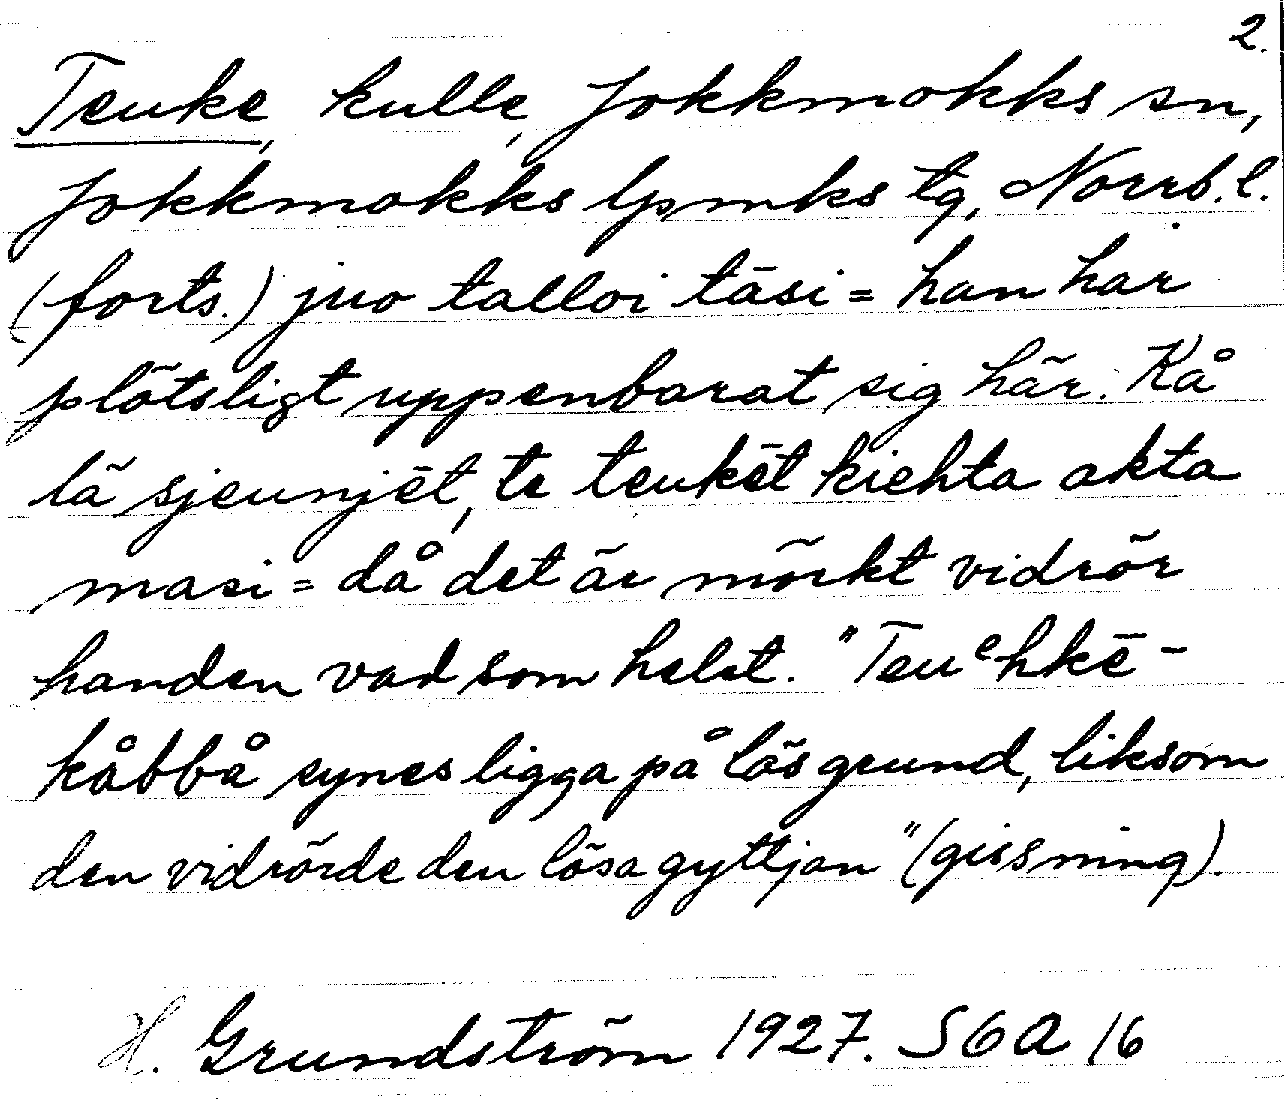 2.
Teuke, kulle, Jokkmokks sn,
Jokkmokks lpmks tg, Norrb. l.
(forts.) juo talloi täsi = han har
plötsligt uppenbarat sig här. Kå
lä sjeunjēt, te teukēt kiehta akta
masi = då det är mörkt vidrör
handen vad som helst. "Teuᵉhkē-
kåbbå synes ligga på lös grund, liksom
den vidrörde den lösa gyttjan" (gissning).
H. Grundström 1927. SOA 16